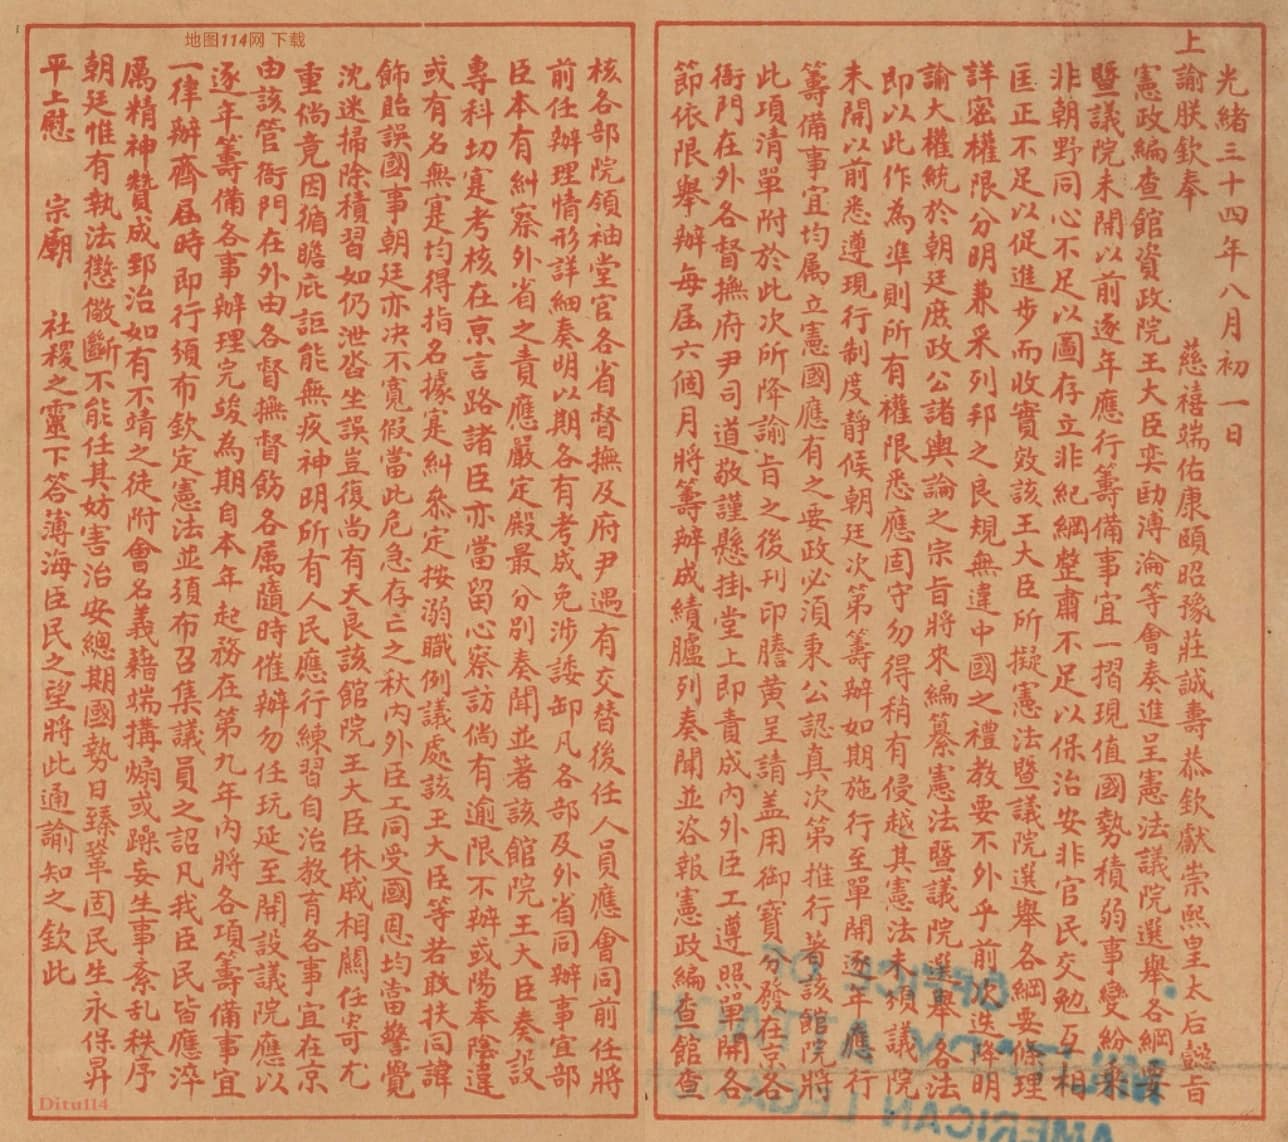 地图114网 下载
光緒三十四年八月初一日
上諭朕欽奉　慈禧端佑康頤昭豫莊誠壽恭欽獻崇熙皇太后懿旨
憲政編查館資政院王大臣奕劻溥倫等會奏進呈憲法議院選舉各綱要
暨議院未開以前逐年應行籌備事宜一摺現值國勢積弱事變紛乘
非朝野同心不足以圖存立非紀綱整肅不足以保治安非官民交勉互相
匡正不足以促進步而收實效該王大臣所擬憲法暨議院選舉各綱要條理
詳密權限分明兼采列邦之良規無違中國之禮教要不外乎前次迭降明
諭大權統於朝廷庶政公諸輿論之宗旨將來編纂憲法暨議院選舉各法
即以此作為準則所有權限悉應固守勿得稍有侵越其憲法未頒議院
未開以前悉遵現行制度靜候朝廷次第籌辦如期施行至單開逐年應行
籌備事宜均屬立憲國應有之要政必須秉公認真次第推行著該館院將
此項清單附於此次所降諭旨之後刊印謄黃呈請蓋用御寶分發在京各
衙門在外各督撫府尹司道敬謹懸掛堂上即責成內外臣工遵照單開各
節依限舉辦每屆六個月將籌辦成績臚列奏聞並咨報憲政編查館查
核各部院領袖堂官各省督撫及府尹遇有交替後任人員應會同前任將
前任辦理情形詳細奏明以期各有考成免涉諉卸凡各部及外省同辦事宜部
臣本有糾察外省之責應嚴定殿最分別奏聞並著該館院王大臣奏設
專科切寔考核在京言路諸臣亦當留心察訪倘有逾限不辦或陽奉陰違
或有名無寔均得指名據寔糾參定按溺職例議處該王大臣等若敢扶同諱
飾貽誤國事朝廷亦決不寬假當此危急存亡之秋內外臣工同受國恩均當警覺
沈迷掃除積習如仍泄沓坐誤豈復尚有天良該館院王大臣休戚相關任寄尤
重倘竟因循瞻庇詎能無疚神明所有人民應行練習自治教育各事宜在京
由該管衙門在外由各督撫督飭各屬隨時催辦勿任玩延至開設議院應以
逐年籌備各事辦理完竣為期自本年起務在第九年內將各項籌備事宜
一律辦齊屆時即行頒布欽定憲法並頒布召集議員之詔凡我臣民皆應淬
厲精神贊成郅治如有不靖之徒附會名義藉端搆煽或躁妄生事紊亂秩序
朝廷惟有執法懲儆斷不能任其妨害治安總期國勢日臻鞏固民生永保昇
平上慰　宗廟　社稷之靈下答薄海臣民之望將此通諭知之欽此
OFFICE OF
MILITARY ATTACH
AMERICAN LEGA
Ditu114